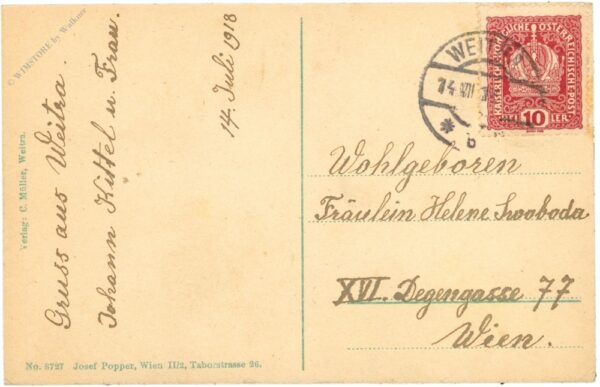 © WIMSTORE by Walkner
Verlag: C. Müller, Weitra.
Gruss aus Weitra.
Johann Küttel u. Frau.
14. Juli 1918
WEITRA
14 VII
* b
KAISERLICHE KÖNIGLICHE ÖSTERREICHISCHE POST
10 HELLER
Wohlgeboren
Fräulein Helene Swoboda
XVI. Degengasse 77
Wien.
No. 8727 Josef Popper, Wien II/2, Taborstrasse 26.